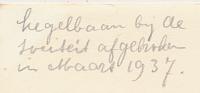 kegelbaan bij de
sociëteit afgebroken
in Maart 1937.